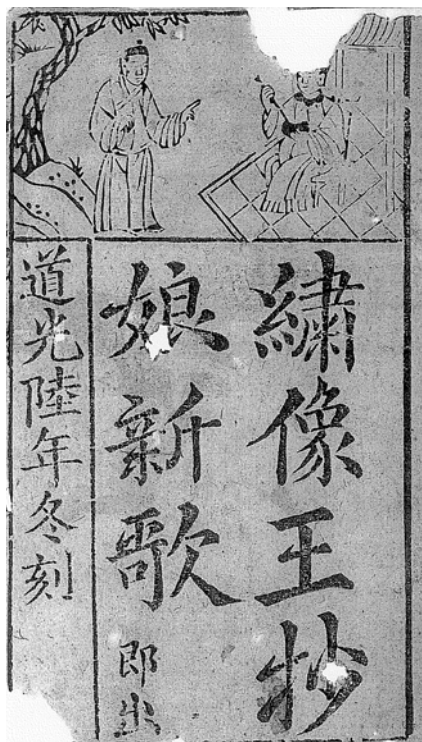 繡像王抄
娘新歌 即出
道光陸年冬刻